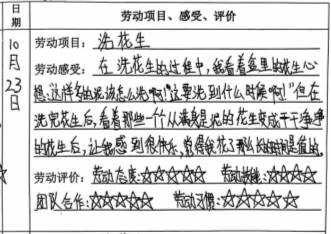 日期
劳动项目、感受、评价
10月23日
劳动项目：洗花生
劳动感受：在洗花生的过程中，我看着盆里的花生心
想："这样多的泥该怎么洗啊！""这要洗到什么时候啊！"但在
洗完花生后，看着那些一个个从满身是泥的花生变成干干净净
的花生后，让我感到很快乐，觉得我花了那么长的时间是值的。
劳动评价：劳动态度：☆☆☆☆☆ 劳动技能：☆☆☆☆☆
团队合作：☆☆☆☆☆ 劳动习惯：☆☆☆☆☆